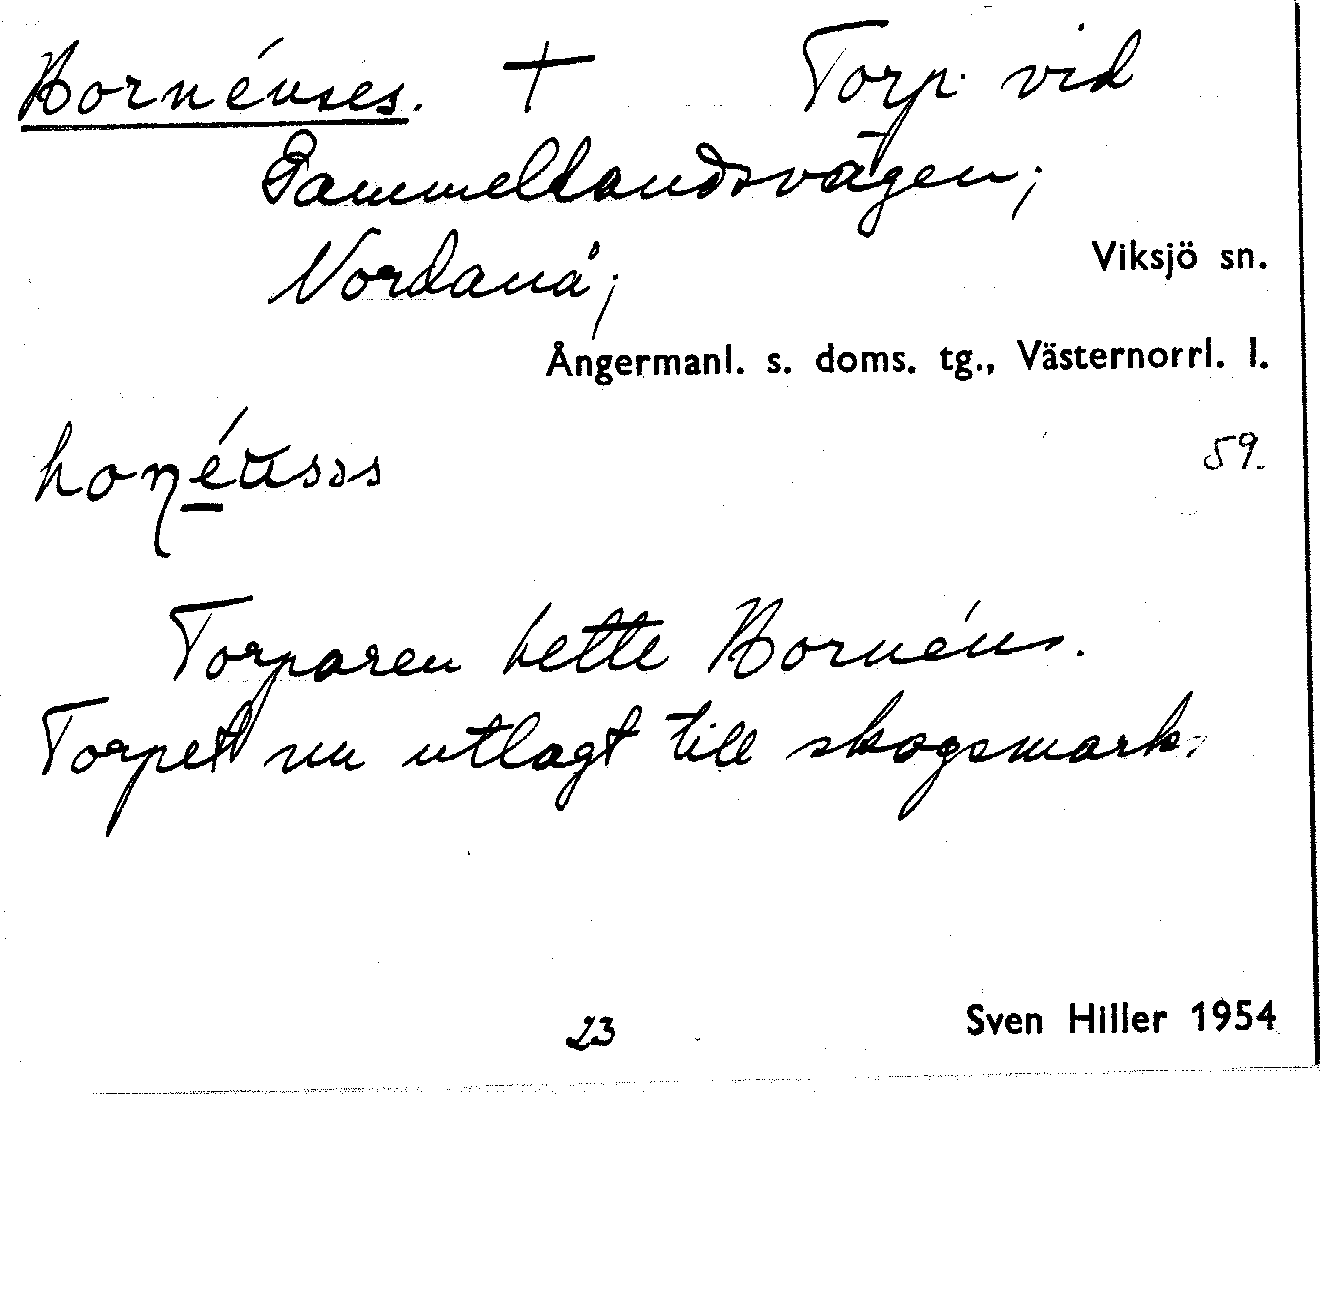 Hornéuses. + Torp vid
Gammellandsvägen;
Nordanå;
Viksjö sn.
Ångermanl. s. doms. tg., Västernorrl. l.
59.
Torparen hette Hornéus.
Torpet nu utlagt till skogsmark.
23
Sven Hiller 1954